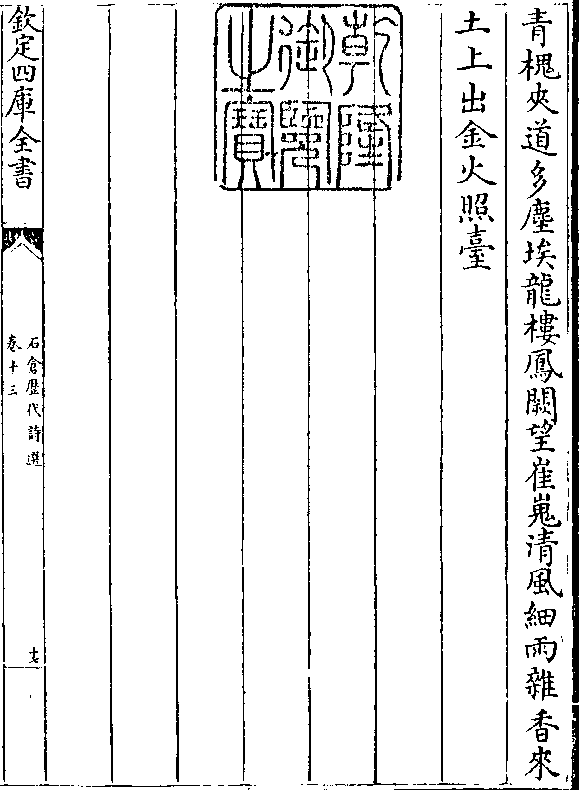 青槐夾道多塵埃龍樓鳳闕望崔嵬清風細雨雜香來
土上出金火照臺
乾隆御覽之寶
欽定四庫全書
石倉歴代詩選
卷十三
十七